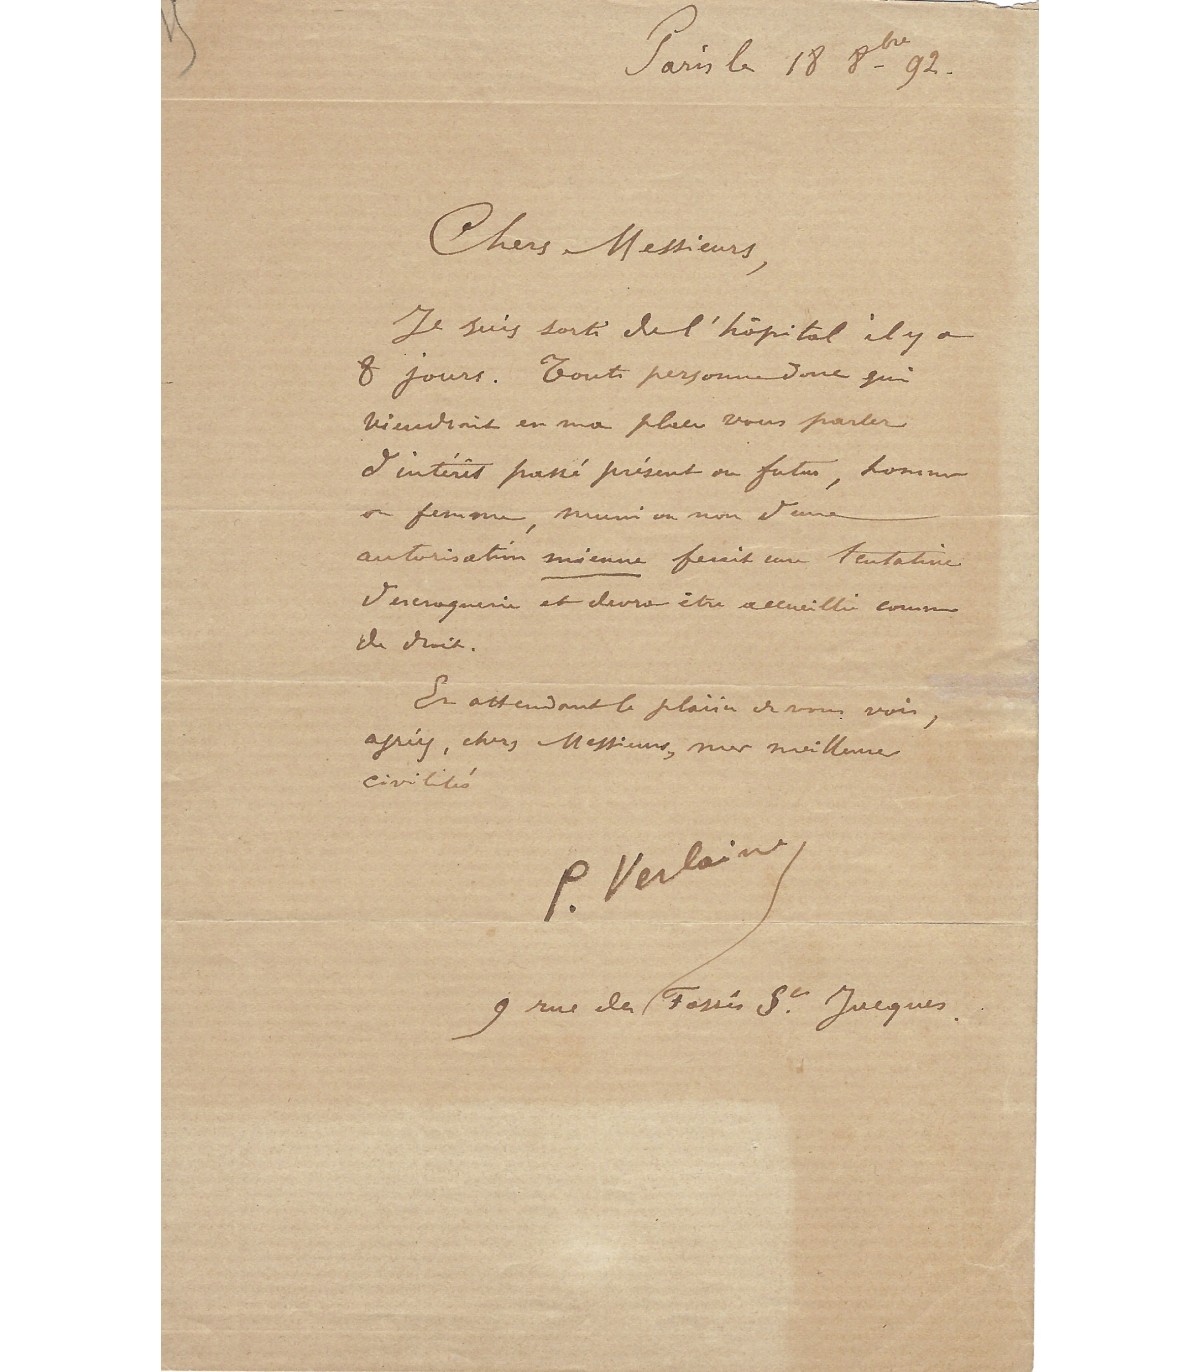 Paris le 18 8bre 92.
Chers Messieurs,
Je suis sorti de l'hôpital il y a
8 jours. Toute personne donc qui
viendrait en ma place vous parler
d'intérêt passé présent ou futur, homme
ou femme, muni ou non d'une
autorisation mienne ferait une tentative
d'escroquerie et devra être accueillie comme
de droit.
En attendant le plaisir de vous voir,
agréez, chers Messieurs, mes meilleures
civilités
P. Verlaine
9 rue des Fossés St. Jacques.